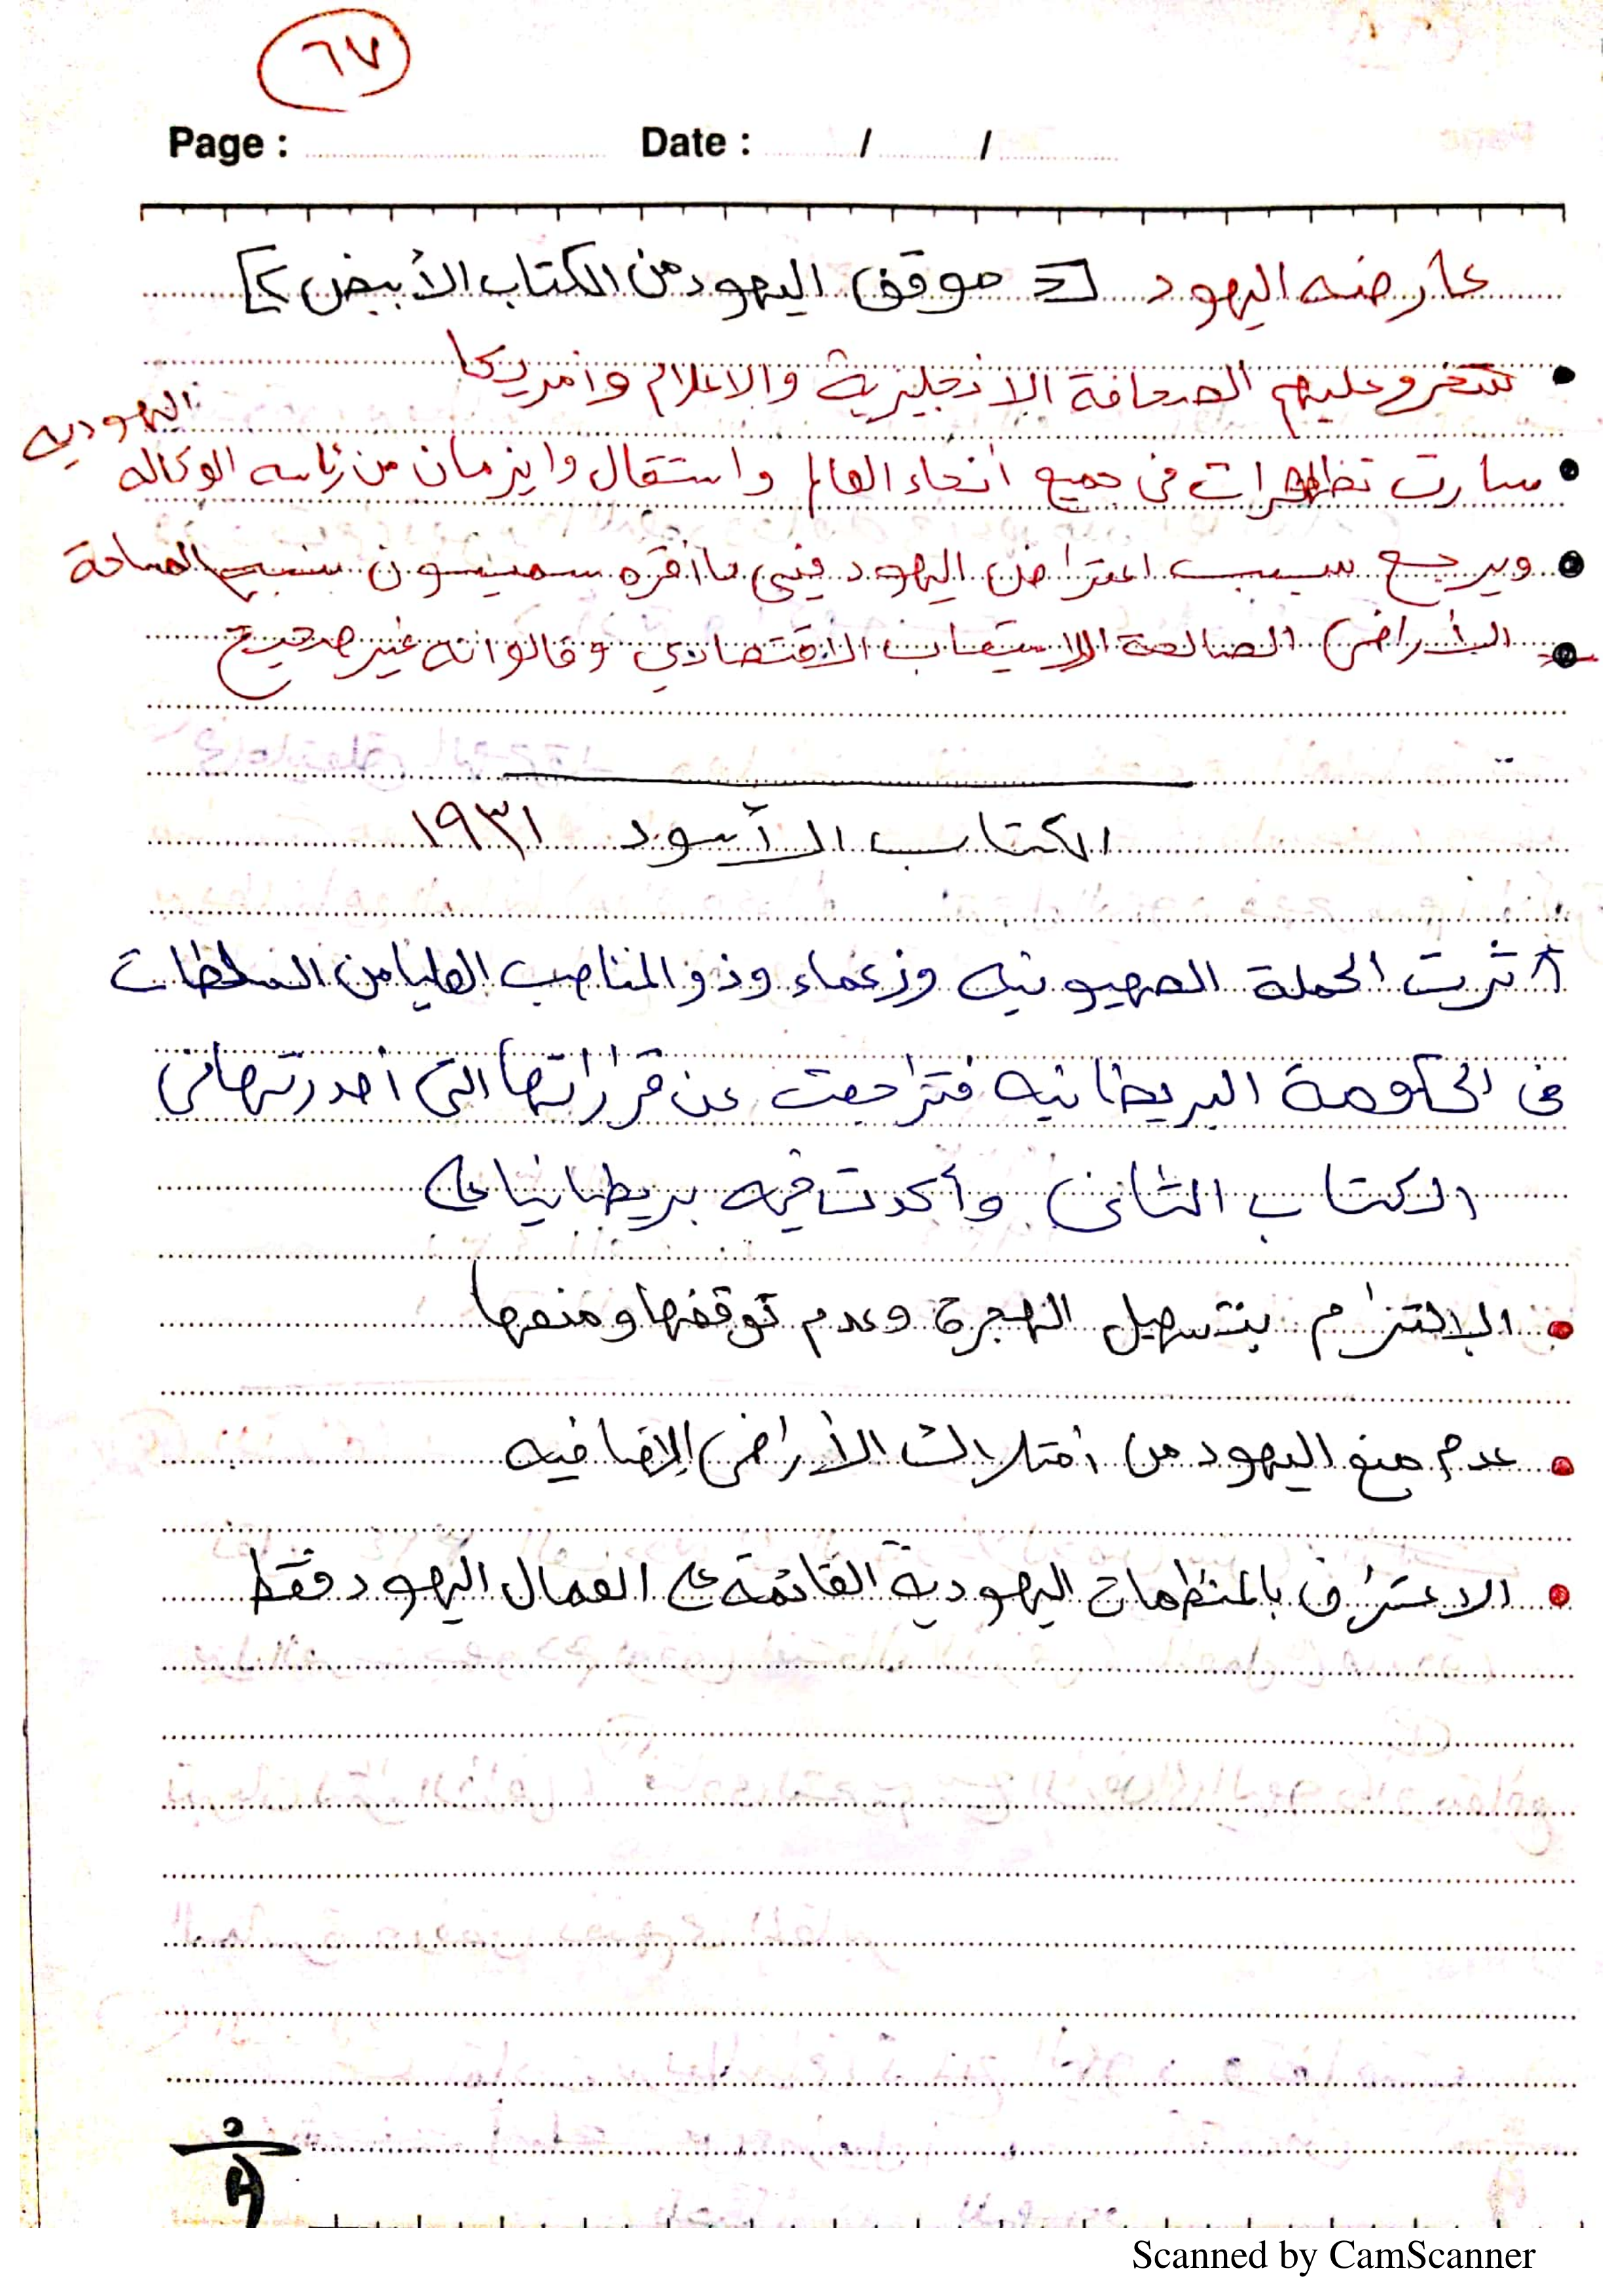 ٦٧
Page : Date : / /
عارضه اليهود [= موقف اليهود من الكتاب الأبيض ؟]
• عليهم الصحافة الانجليزية والاعلام وأمريكا
• سارت تظاهرات في جميع أنحاء العالم واستقال وايزمان من رئاسه الوكاله اليهوديه
• ويرجع سبب اعتراض اليهود فيى ما أقره سمبسون المساحة
• الأراضى الصالحة للاستيعاب الاقتصادي وقالوا انه غير صحيح
الكتاب الأسود ١٩٣١
أثرت الحملة الصهيونيه وزعماء وذو المناصب العليا من السلطات
فى الحكومة البريطانيه فتراجعت عن قراراتها التى أصدرتها فى
الكتاب الثانى وأكدت فيه بريطانيا على
• الالتزام بتسهيل الهجرة وعدم توقفها ومنعها
• عدم منع اليهود من امتلاك الأراضى الإضافيه
• الاعتراف بالمنظمات اليهودية القائمة على العمال اليهود فقط
Scanned by CamScanner